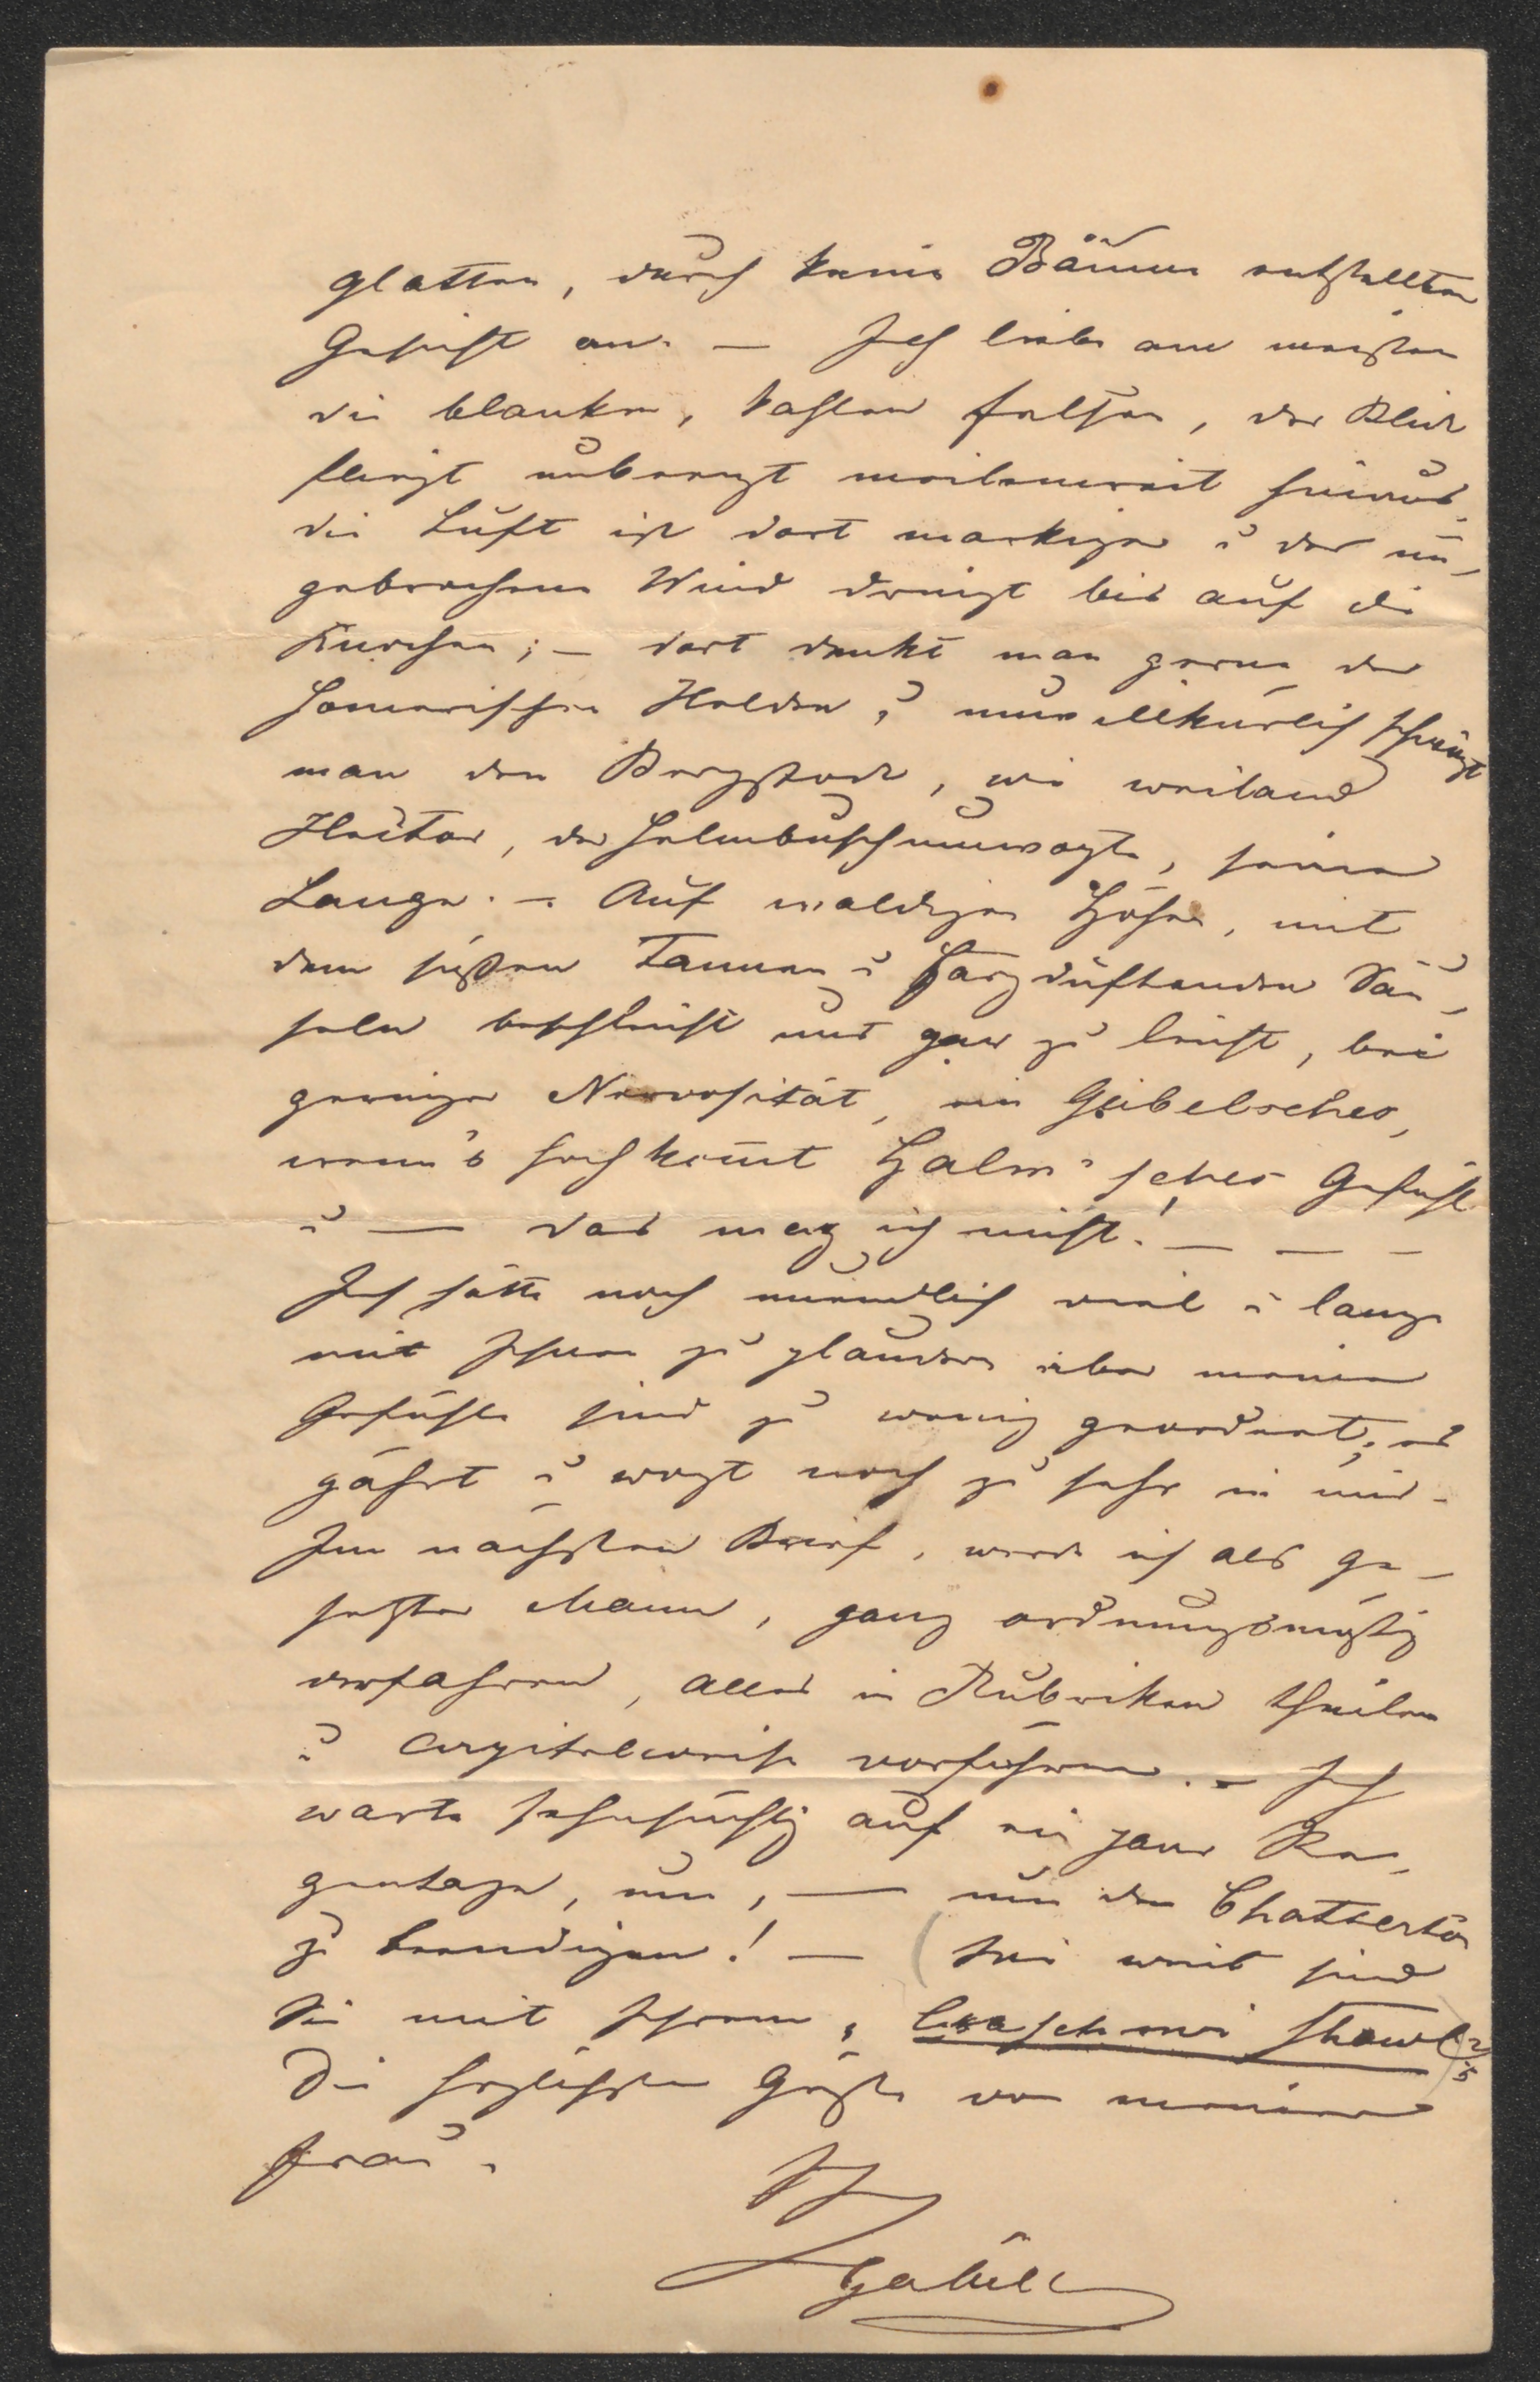 glatten, durch keine Bäume entstellten
Gesicht an. — Ich liebe am meisten
die blanken, kahlen Felsen, der Blick
fliegt unbeengt meilenweit hinaus,
die Luft ist dort markiger u der un-
gebrochene Wind dringt bis auf die
Knochen; — dort denkt man gerne der
homerischen Helden, u unwillkürlich schwingt
man den Bergstock, wie weiland
Hector, der helmbuschumwogte, seine
Lanze. — Auf waldigen Höhen, mit
dem süßen Tannen u Harzduftenden Säu-
seln beschleicht uns gar zu leicht, bei
geringer Nervosität, ein Geibelsches,
wenn's hoch kom̄t Halm'sches Gefühl
u — das mag ich nicht! — — —
Ich hätte noch mündlich viel u lange
mit Ihnen zu plaudern aber meine
Gefühle sind zu wenig geordnet; es
gährt u wogt noch zu sehr in mir.
Im nächsten Brief, werde ich als ge-
setzter Mann, ganz ordnungsmäßig
verfahren, alles in Rubriken theilen
u capitelweise vorführen. — Ich
warte sehnsüchtig auf ein paar Re-
gentage, um, — um den Chatterton
zu beendigen! — (Wie weit sind
Sie mit Ihrem, Caschmir Shawl?)
Die herzlichsten Grüße von meiner
Frau.
Ihr
Gabill